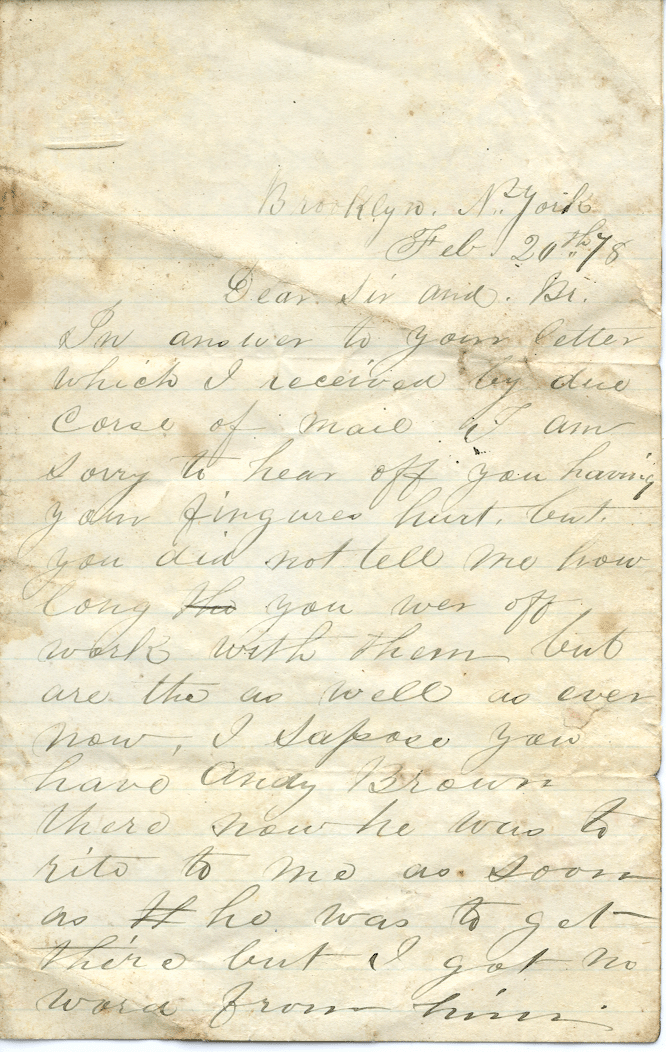 Brooklyn. N. York
Feb. 20th 78
Dear. Sir and. Br.
In answer to your letter
which I received by due
Corse of mail I am
sorry to hear off you having
your fingures hurt. but.
you did not tell me how
long tho you wer off
work with them but
are the as well as ever
now, I sapose you
have Andy Brown
there now he was to
rite to me as soon
as tt he was to get
there but I got no
word from him.